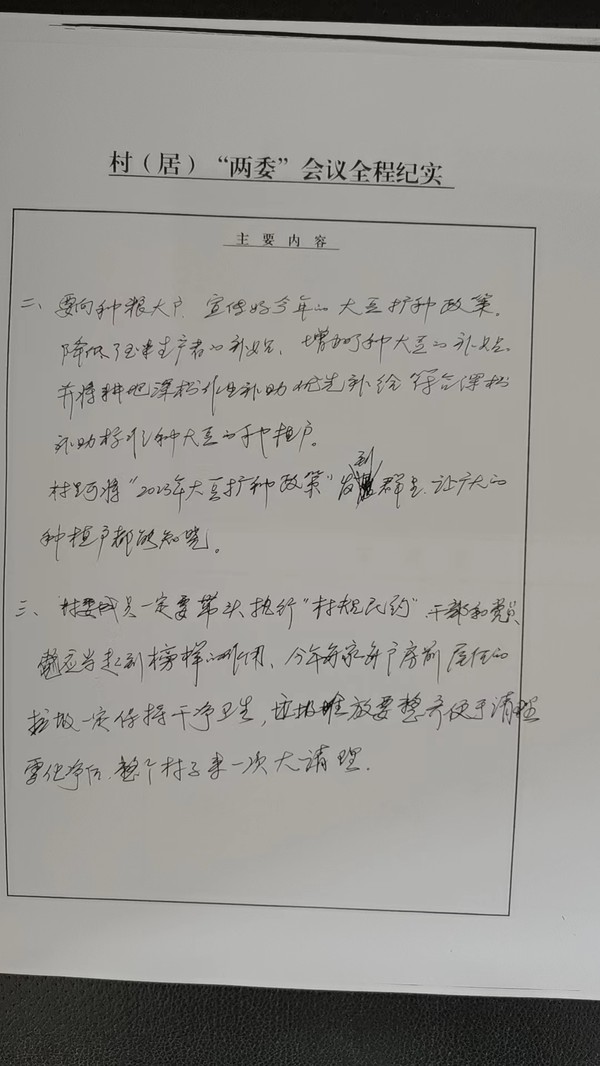 村（居）“两委”会议全程纪实
主要内容
二、要向种粮大户，宣传好今年的大豆扩种政策，
降低了玉米生产者的补贴，增加了种大豆的补贴。
并将耕地深松作业补助优先补给符合深松
补助标准种大豆的种植户。
村里可将“2023年大豆扩种政策”发到群里，让广大的
种植户都能知晓。
三、村委成员一定要带头执行“村规民约”，干部和党员
应当起到榜样的作用，今年每家每户房前屋后的
垃圾一定保持干净卫生，垃圾堆放要整齐便于清理
雪化净后，整个村子来一次大清理。